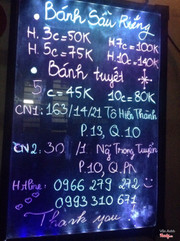 Bánh Sầu Riêng
H. 3c=50K H7c=100K
H. 5c=75K H.10c=140K
Bánh tuyết
5c=45K 10c=80K
CN1: 163/14/21 Tô Hiến Thành
P.13, Q.10
CN2: 30/1 Ng Trọng Tuyển
P.10, Q.PN
Hotline: 0966 279 272
0993 310 671
Thank you